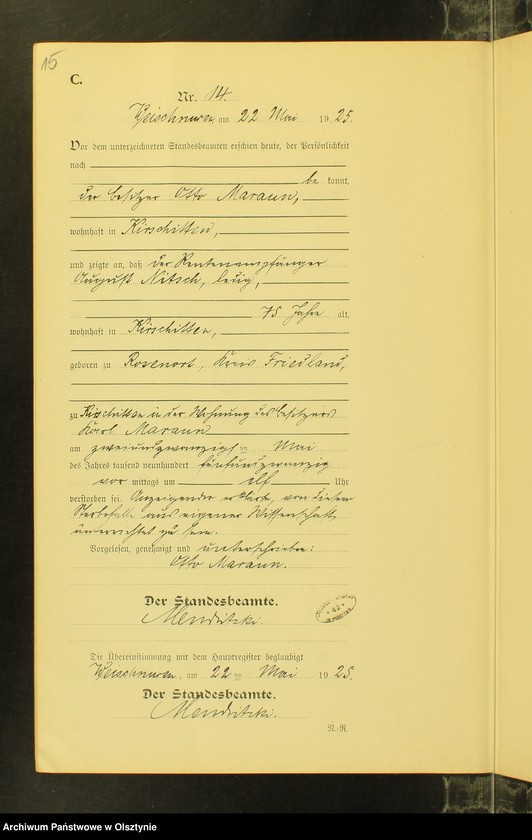 15
C.
Nr. 14.
am 22 Mai 1925.
Vor dem unterzeichneten Standesbeamten erschien heute, der Persönlichkeit
nach
be kannt,
der Besitzer Otto Marann,
wohnhaft in Kirschitten,
und zeigte an, daß der Rentenempfänger
August Nitsch, ledig,
75 Jahre alt,
wohnhaft in Kirschitten,
geboren zu Rosenort, Kreis Friedland,
zu Kirschitten in der Wohnung des Besitzers
Karl Marann
am zweiundzwanzigsten Mai
des Jahres tausend neunhundert fünfundzwanzig
vor mittags um elf Uhr
verstorben sei. Anzeigender erklärt, von diesem
Sterbefalle aus eigener Wissenschaft
unterrichtet zu sein.
Vorgelesen, genehmigt und unterschrieben:
Otto Marann.
Der Standesbeamte.
42
Die Übereinstimmung mit dem Hauptregister beglaubigt
am 22ten Mai 1925.
Der Standesbeamte.
N.-R.
Archiwum Państwowe w Olsztynie